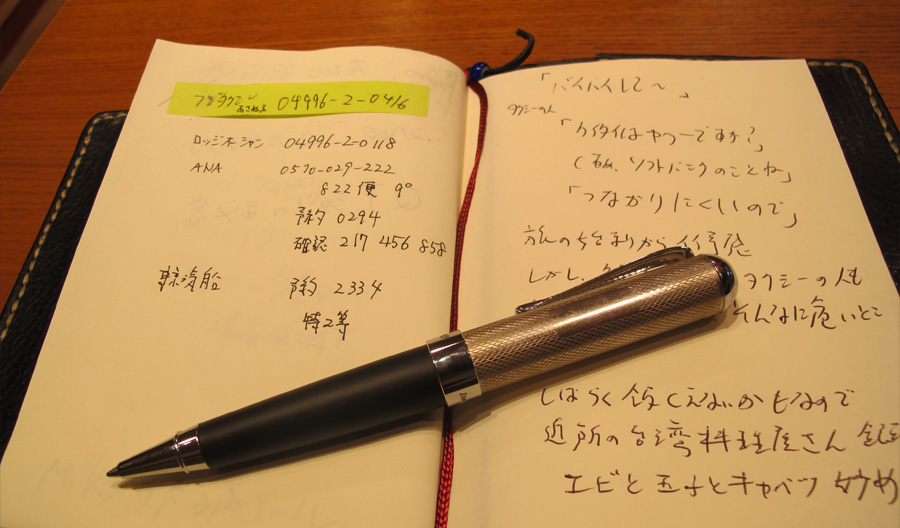 あさぬま 04996-2-0416
ロッジオーシャン 04996-2-0118
ANA 0570-029-222
822便 9°
予約 0294
確認 217 456 858
東京汽船 予約 2334
特2等
「バイバイして〜」
タクシーの人
「ケイタイはヤフーですか?」
ソフトバンクのことね」
「つながりにくいので」
旅の始まりから
しかし、 タクシーの人も
そんなに危いとこ
しばらく飯くえないかもなので
近所の台湾料理屋さん
エビと玉子とキャベツ炒め